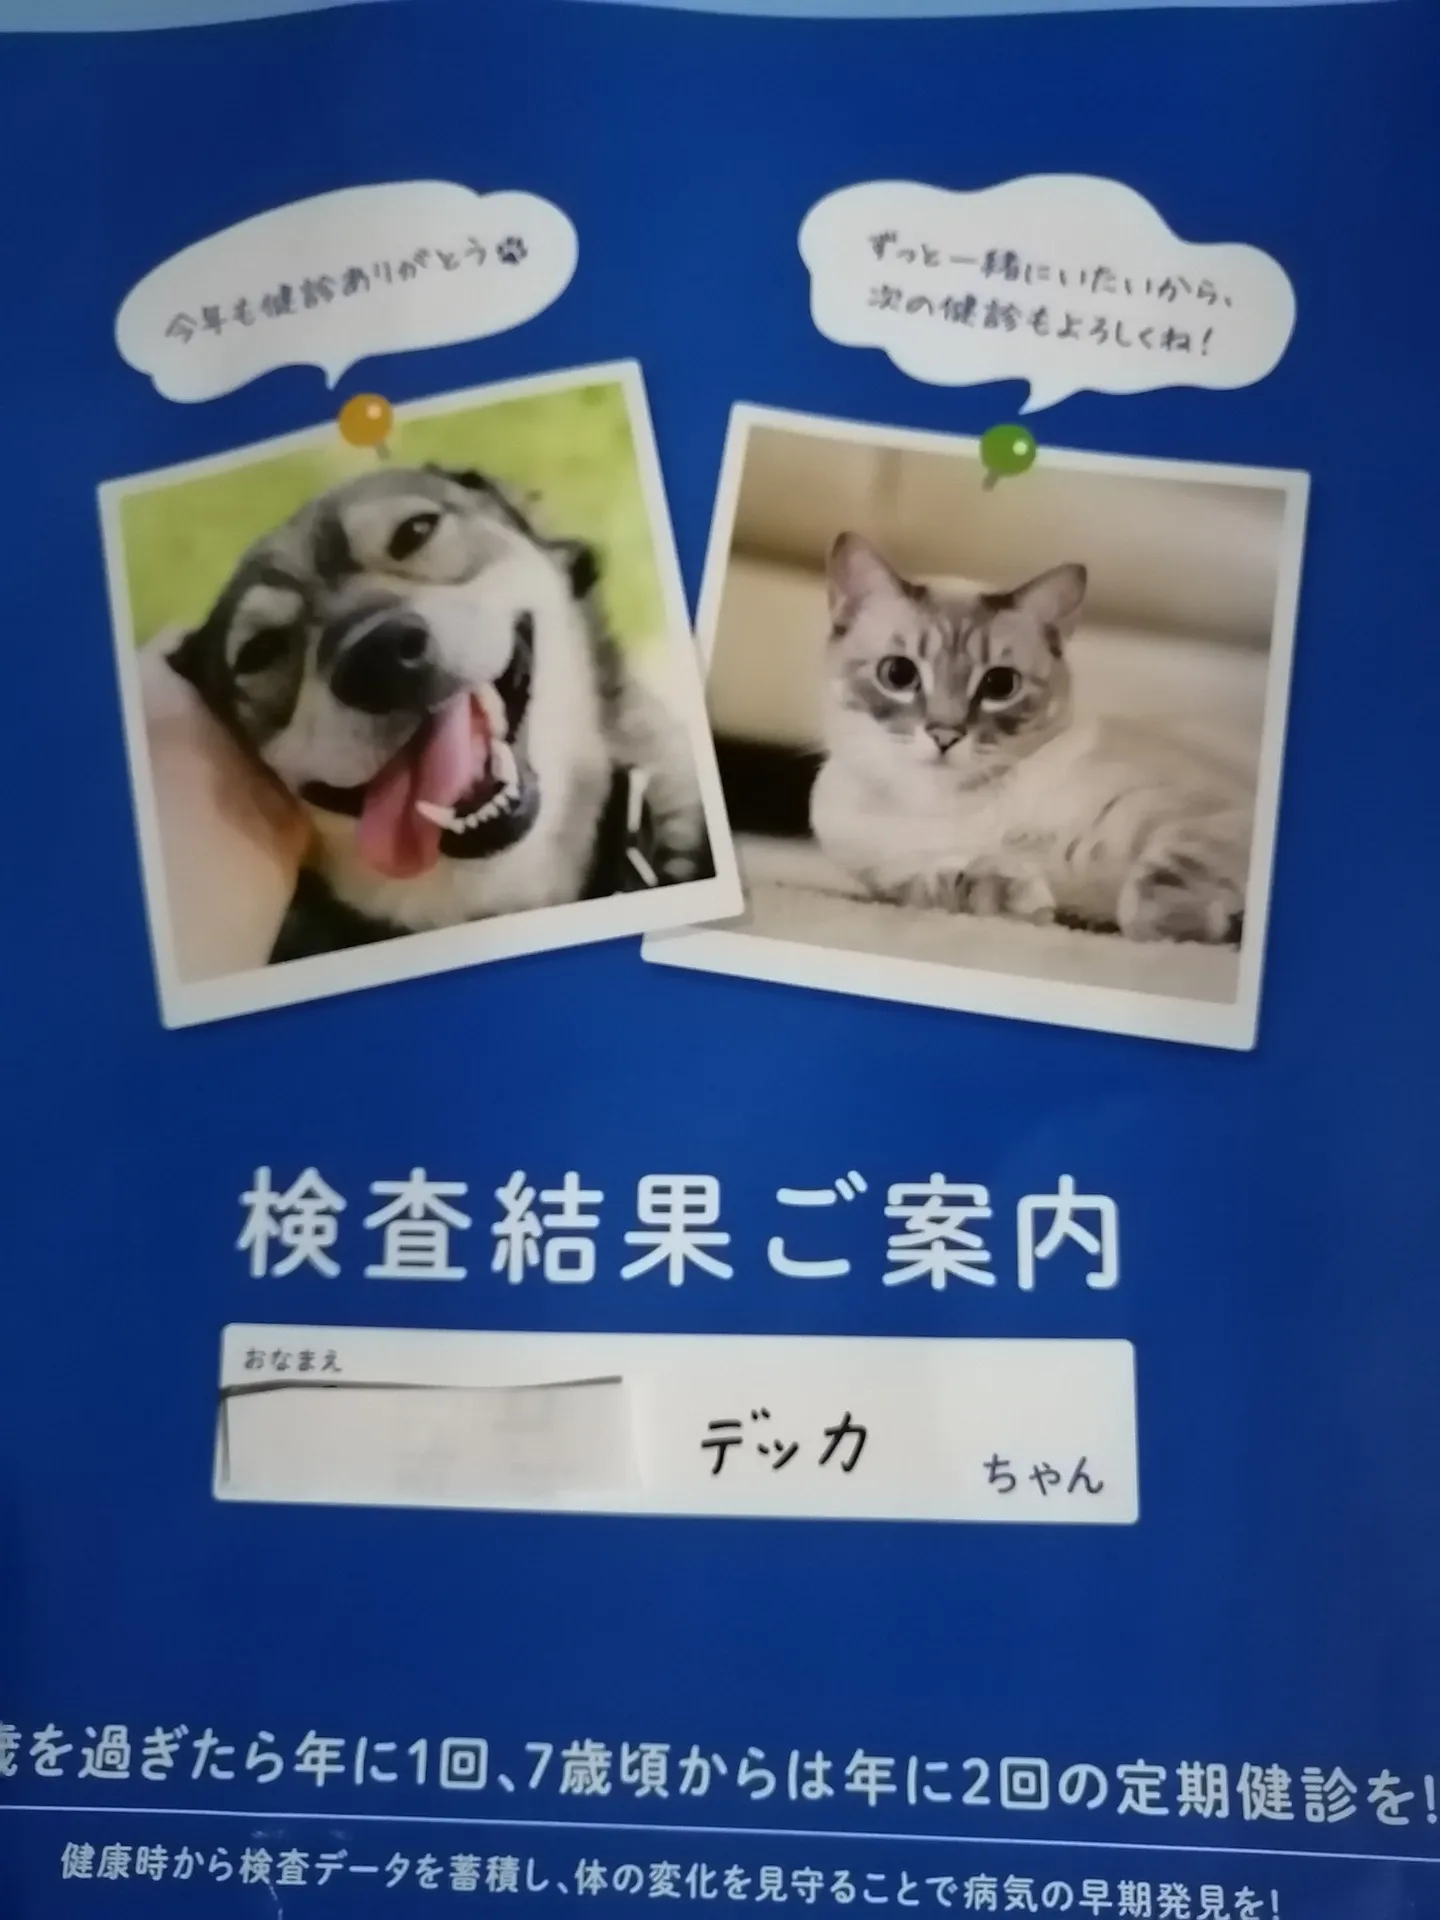 今年も健診ありがとう
ずっと一緒にいたいから、
次の健診もよろしくね!
検査結果ご案内
おなまえ
デッカ ちゃん
歳を過ぎたら年に1回、7歳頃からは年に2回の定期健診を!
健康時から検査データを蓄積し、体の変化を見守ることで病気の早期発見を!